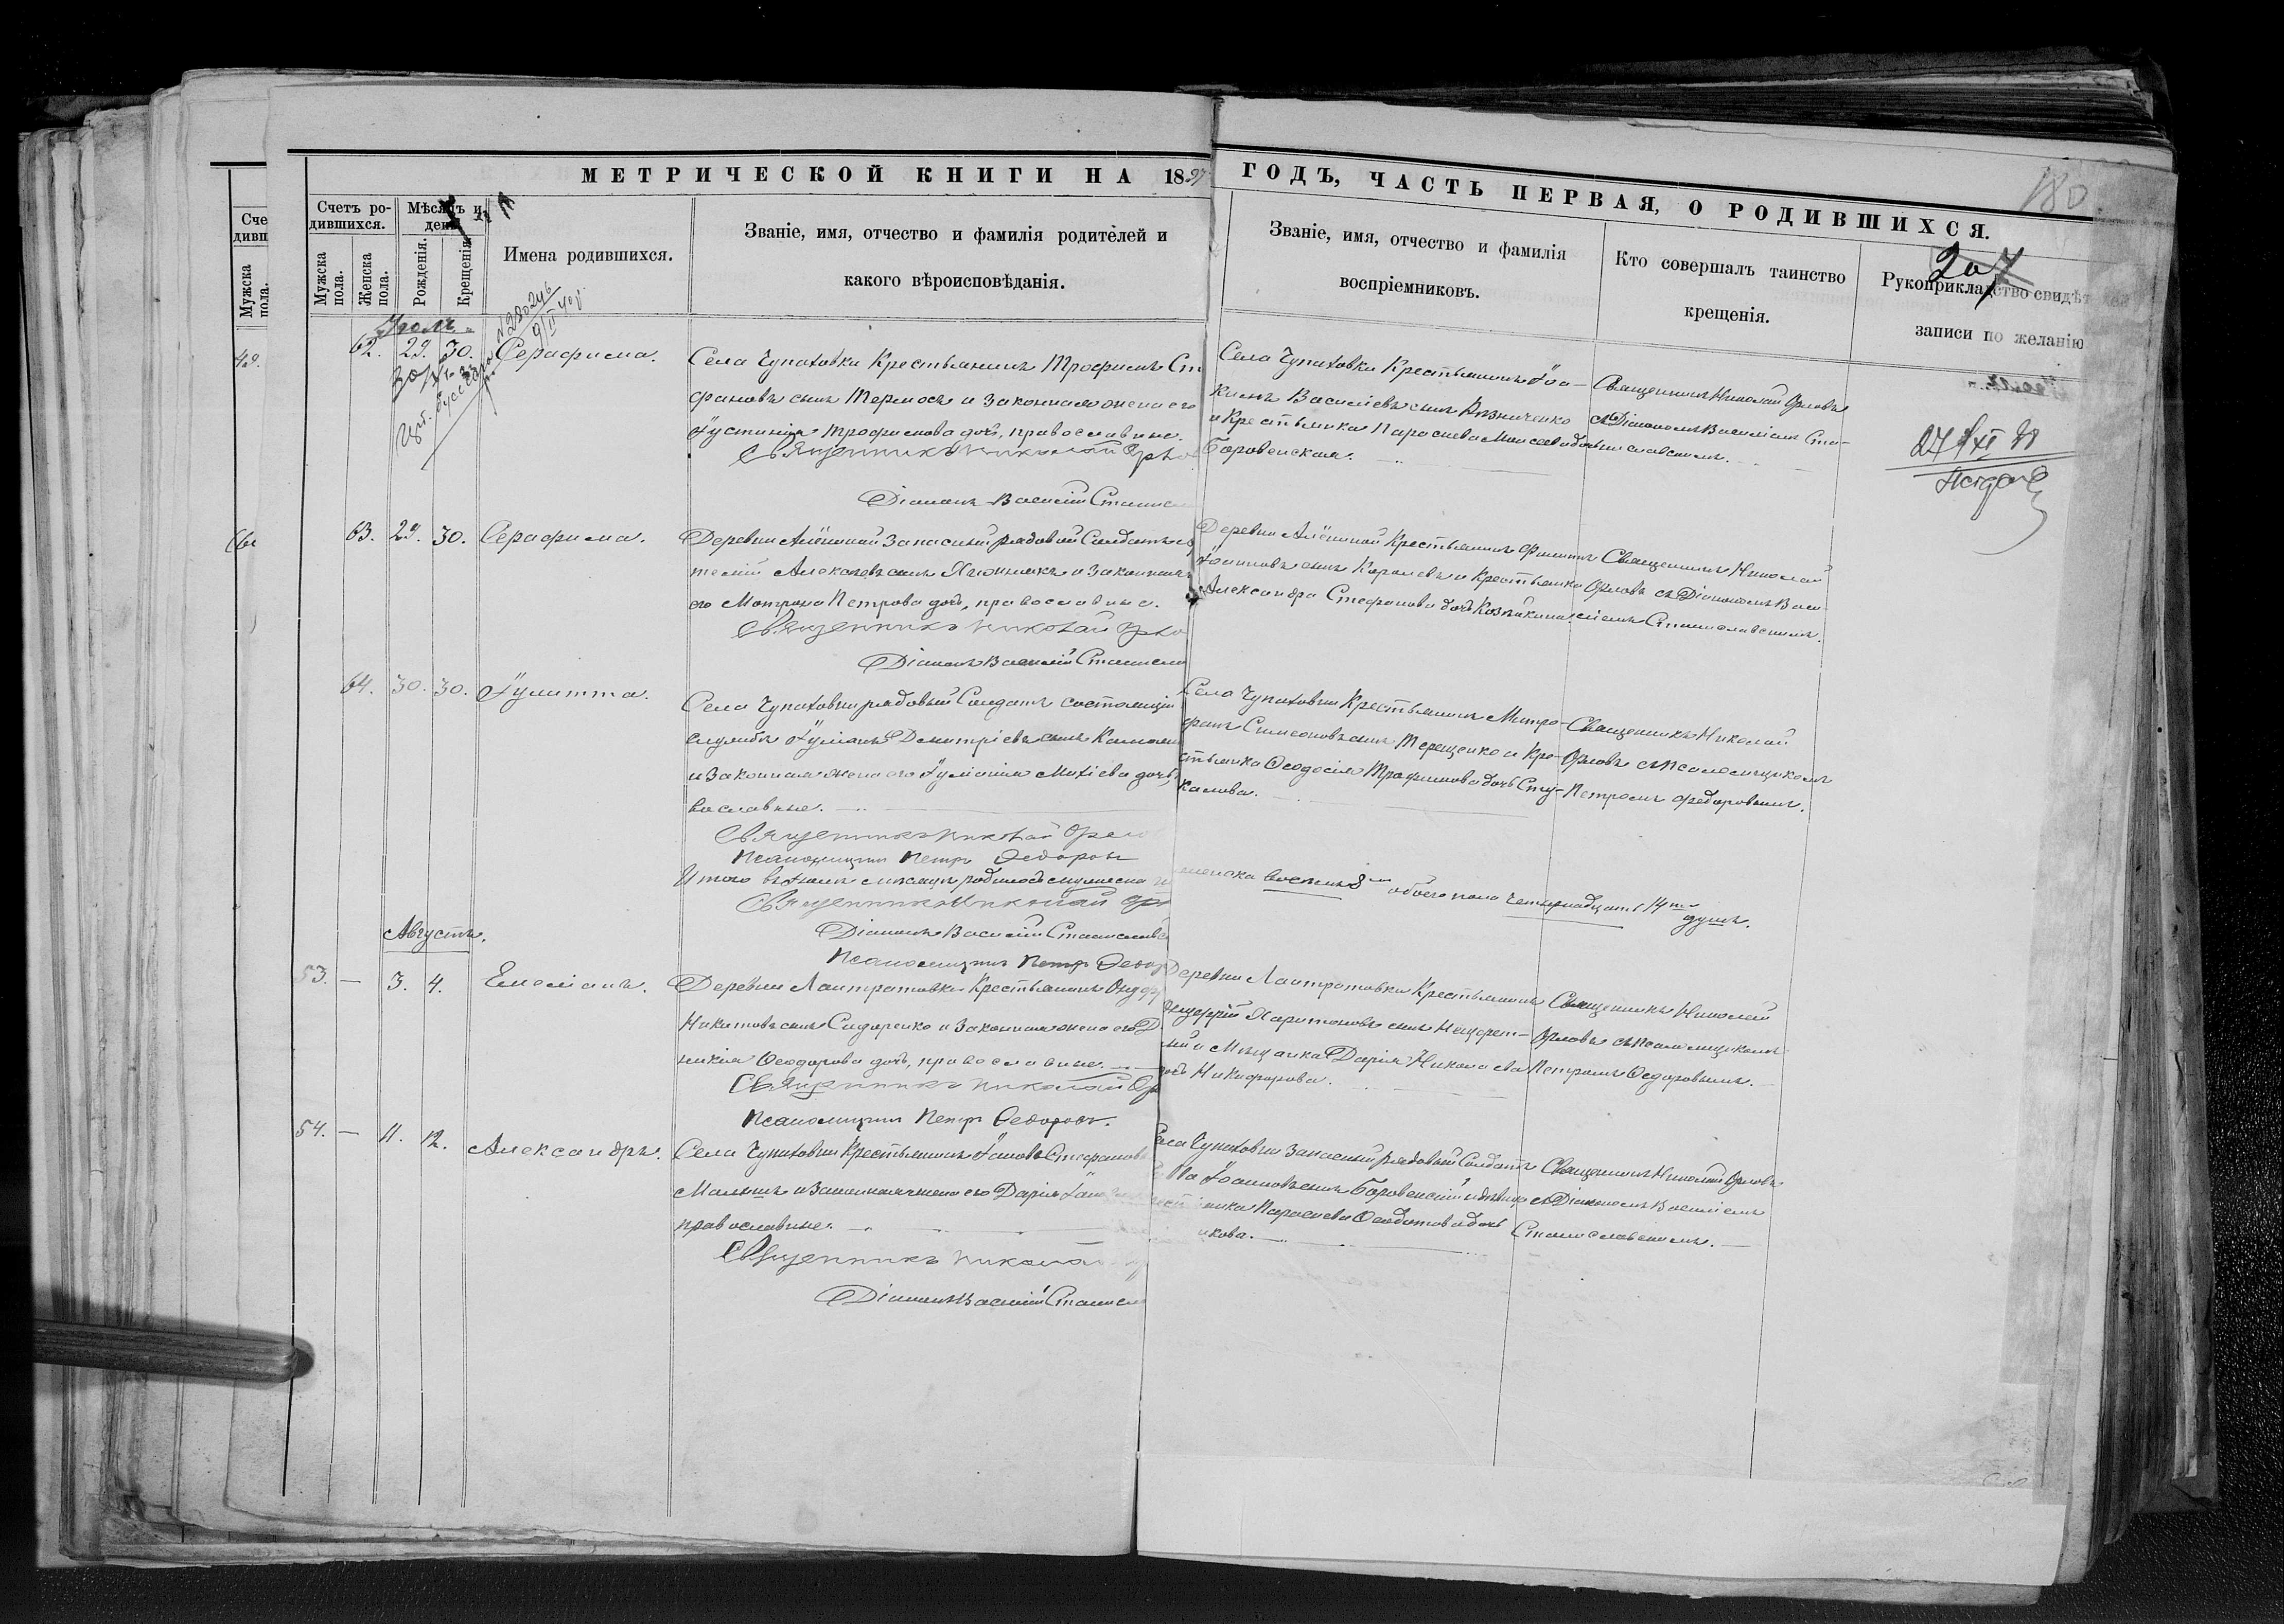 МЕТРИЧЕСКОЙ КНИГИ НА 1897
ГОДЪ, ЧАСТЬ ПЕРВАЯ, О РОДИВШИХСЯ.
180
207
Счетъ ро-
дившихся.
Мѣсяцъ и
день
Мужска
пола.
Женска
пола.
Рожденія.
Крещенія
Имена родившихся.
Званіе, имя, отчество и фамилія родителей и
какого вѣроисповѣданія.
Званіе, имя, отчество и фамилія
воспріемниковъ.
Кто совершалъ таинство
крещенія.
Рукоприкладство свидѣт
записи по желанію
Сче
дивп
Мужска
пола.
62. 29. 30. Серафима.
Села Чупаховки Крестьянинъ Трофимъ Ст
фановъ сынъ и законная жена его
Іустинія Трофимова дочь, православные.
Священникъ Николай Орло
Діаконъ Василій Станисл
Села Чупаховки Крестьянинъ Іоа-
кимъ Василіевъ сынъ Рѣзниченко
и Крестьянка Параскева Моисеева дочь
Боровенская.
Священникъ Николай Орловъ
съ Діакономъ Василіемъ Ста-
ниславскимъ.
63. 29. 30. Серафима.
Деревни Алёшиной Запасный рядовой Солдатъ
сынъ и законная
его Матрона Петрова дочь, православные.
Священникъ Николай Орло
Діаконъ Василій Станисла
Деревни Алёшиной Крестьянинъ Филиппъ
Іоанновъ сынъ Королевъ и Крестьянка
Александра Стефанова дочь
Священникъ Николай
Орловъ съ Діакономъ Васи-
ліемъ Станиславскимъ.
64. 30. 30. Іулитта.
Села Чупаховки рядовый Солдатъ состоящій
службѣ Іуліанъ Димитріевъ сынъ
и законная жена его Іуліанія Михіева дочь,
вославные.
Священникъ Николай Орло
Псаломщикъ Петръ Федоровъ
Села Чупаховки Крестьянинъ Митро-
фанъ Симеоновъ сынъ Терещенко и Кре-
стьянка Ѳеодосія Трофимова дочь Сту-
калова.
Священникъ Николай
Орловъ съ псаломщикомъ
Петромъ Федоровымъ.
Итого въ Іюлѣ мѣсяцѣ родилось мужеска
женска восемь 8 обоего пола четырнадцать 14
душъ.
Священникъ Николай Ор
Діаконъ Василій Станиславс
Псаломщикъ Петръ Федор
Августъ.
53. — 3. 4. Емеліанъ.
Деревни Лантратовки Крестьянинъ
Никитовъ сынъ Сидоренко и законная жена его
никія Ѳеодорова дочь, православные.
Священникъ Николай Ор
Псаломщикъ Петръ Федоровъ.
Деревни Лантратовки Крестьянинъ
Димитрій Харитоновъ сынъ
и Мѣщанка Дарія Николаева
дочь Никифорова.
Священникъ Николай
Орловъ съ псаломщикомъ
Петромъ Ѳедоровымъ.
54. — 11. 12. Александръ.
Села Чупаховки Крестьянинъ Іаковъ Стефановъ
Малышъ и законная жена его Дарія
православные.
Священникъ Никола
Діаконъ Василій Станисл
Села Чупаховки Запасный рядовый Солдатъ
Савва Іоанновъ сынъ Боровенскій и дѣвица
Крестьянка Параскева Ѳеодотова дочь
икова.
Священникъ Николай Орловъ
съ Діакономъ Василіемъ
Станиславскимъ.